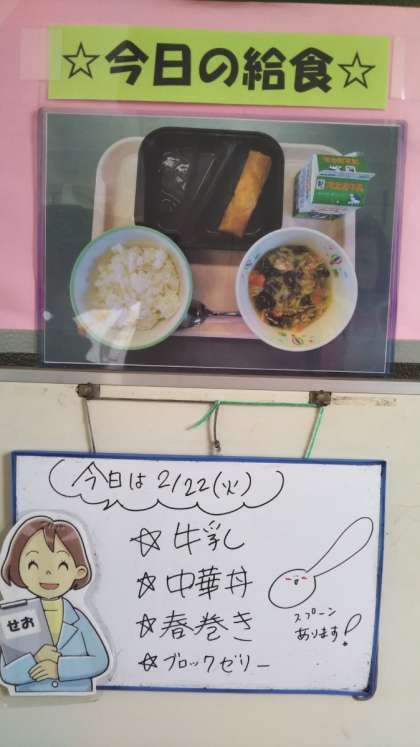 ☆今日の給食☆
今日は 2/22(火)
☆牛乳
☆中華丼
☆春巻き
☆ブロックゼリー
スプーン
あります!
せお